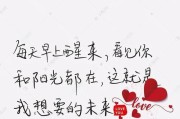 每天早上醒来,看见你
和阳光都在,这就是
我想要的未来
love